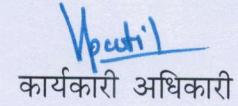 Vpatil
कार्यकारी अधिकारी